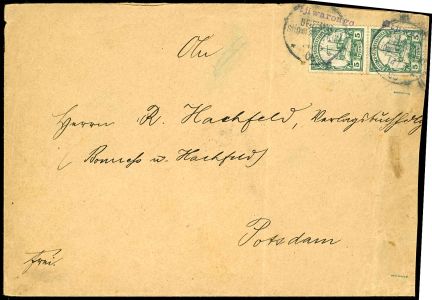 Otjiwarongo
5 5
An
Herrn R. Hachfeld, Verlagsbuchhdlg
(Bonness u. Hachfeld)
Potsdam.
frei.